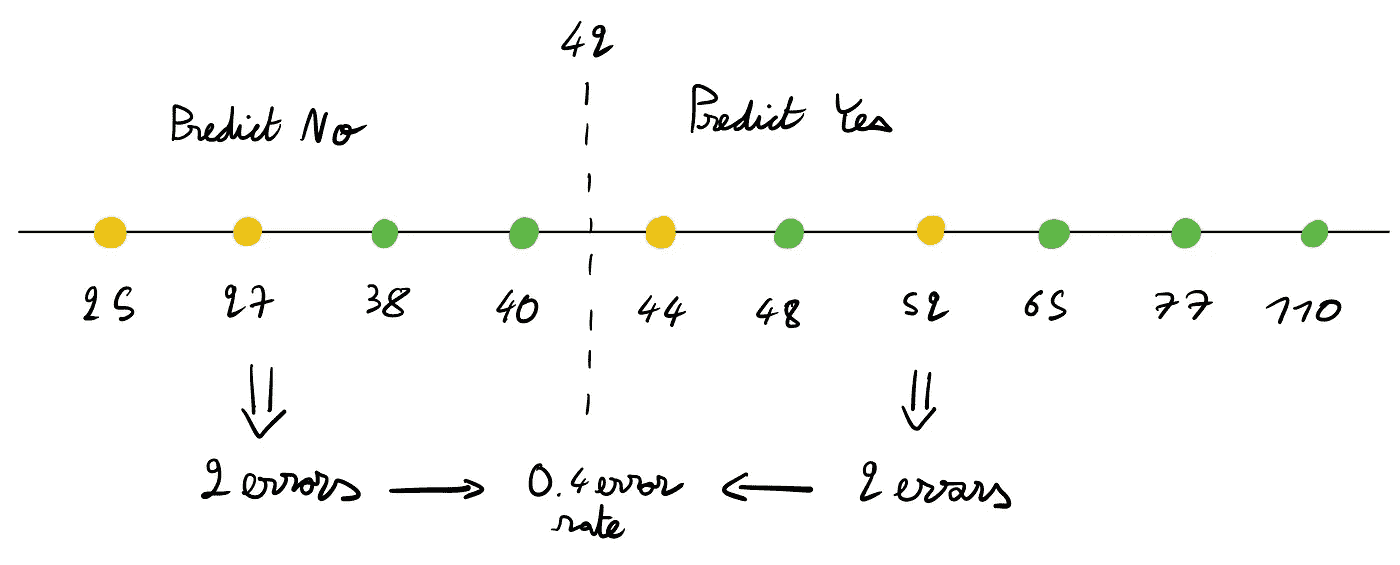 42
Predict No
Predict Yes
25 27 38 40 44 48 52 65 77 110
2 errors 0.4 error rate 2 errors